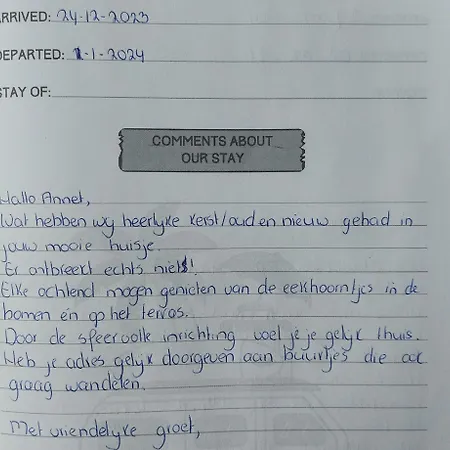 ARRIVED: 24-12-2023
DEPARTED: 1-1-2024
STAY OF:
COMMENTS ABOUT
OUR STAY
Hallo Annet,
Wat hebben wy heerlyke kerst/oud en nieuw gehad in
jouw mooie huisje.
Er ontbreekt echts niets!
Elke ochtend mogen genieten van de eekhoorntjes in de
bomen en op het terras.
Door de sfeervolle inrichting voel je je gelyk thuis.
Heb je adres gelyk doorgeven aan buurtjes die ook
graag wandelen.
Met vriendelyke groet,